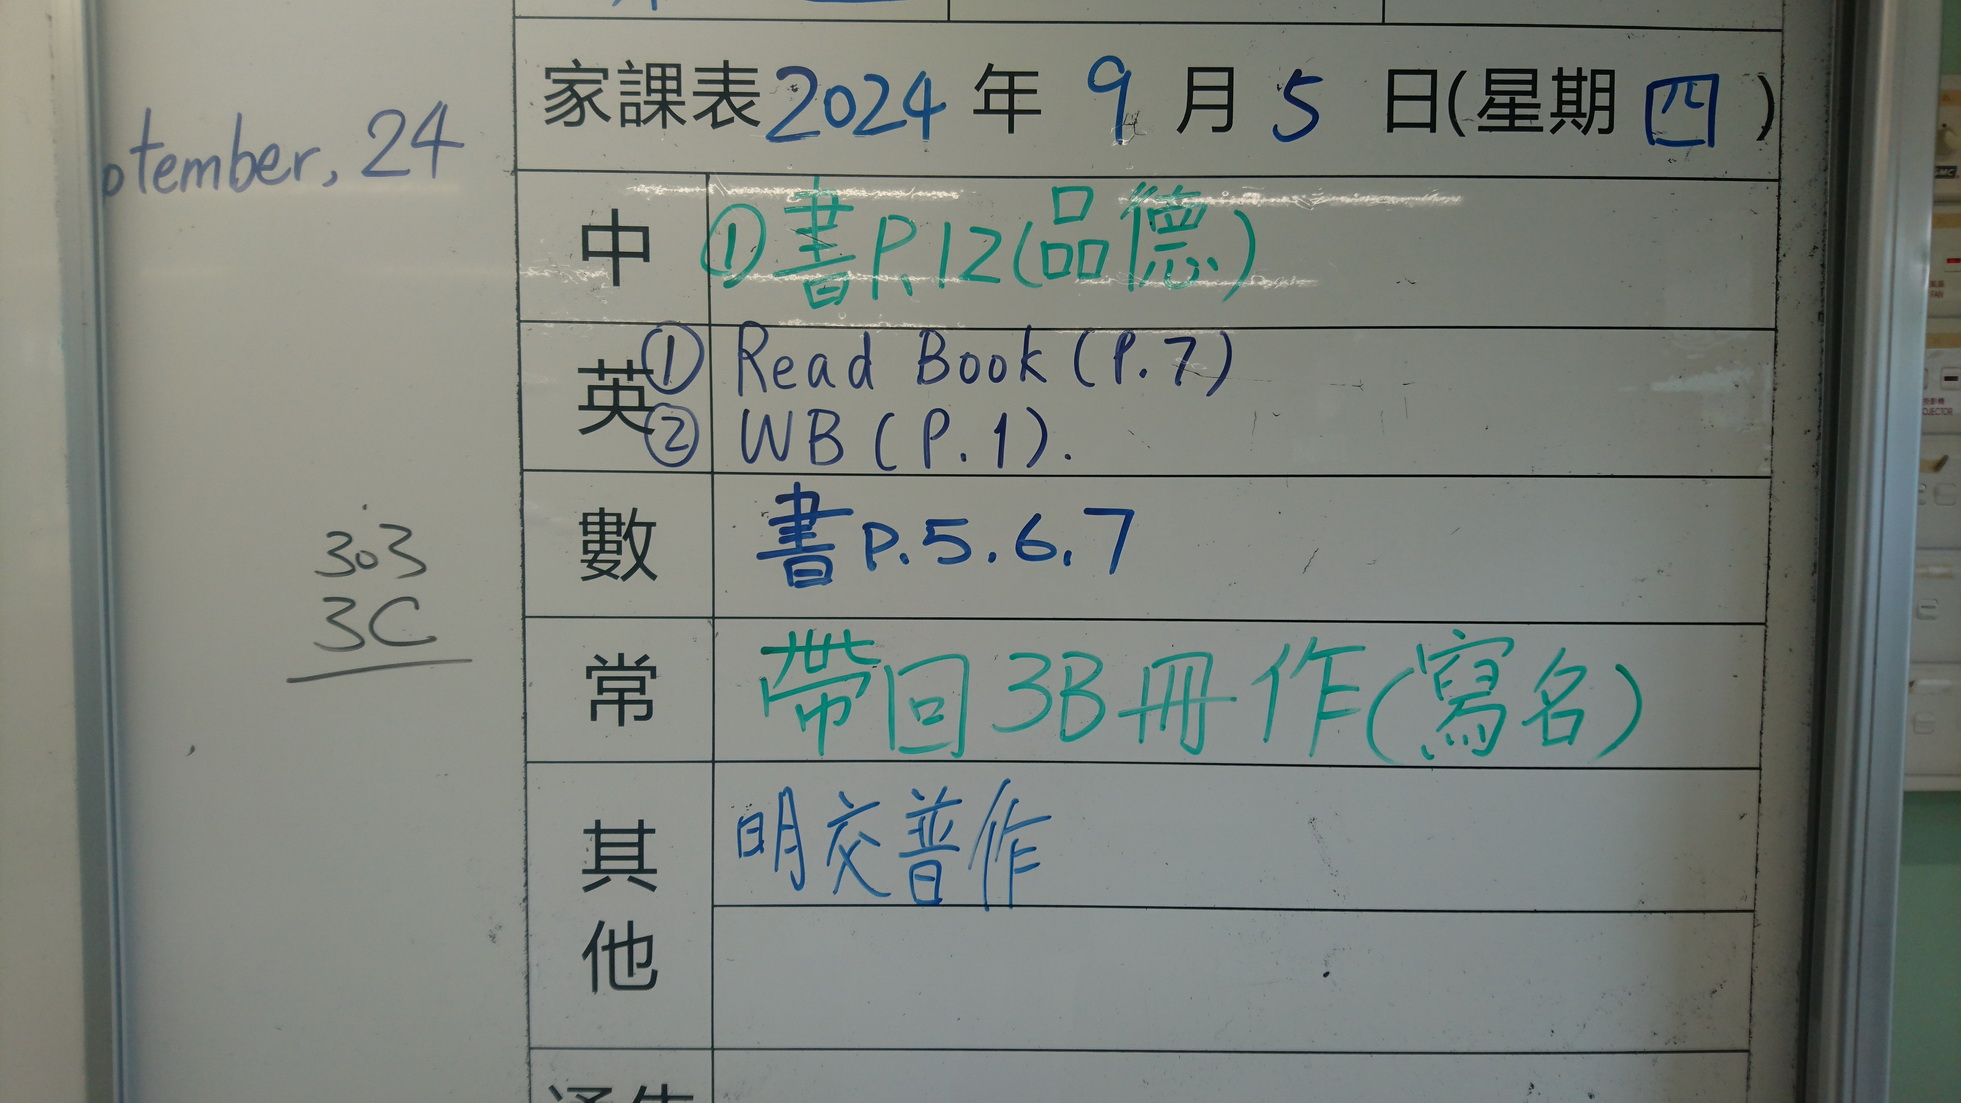 家課表2024年9月5日(星期四)
ptember, 24
中 ①書P.12(品德)
英 ① Read Book (P.7)
② WB (P.1).
數 書P.5.6.7
303
3C
常 帶回3B冊作(寫名)
其他 明交普作
通告
FAN